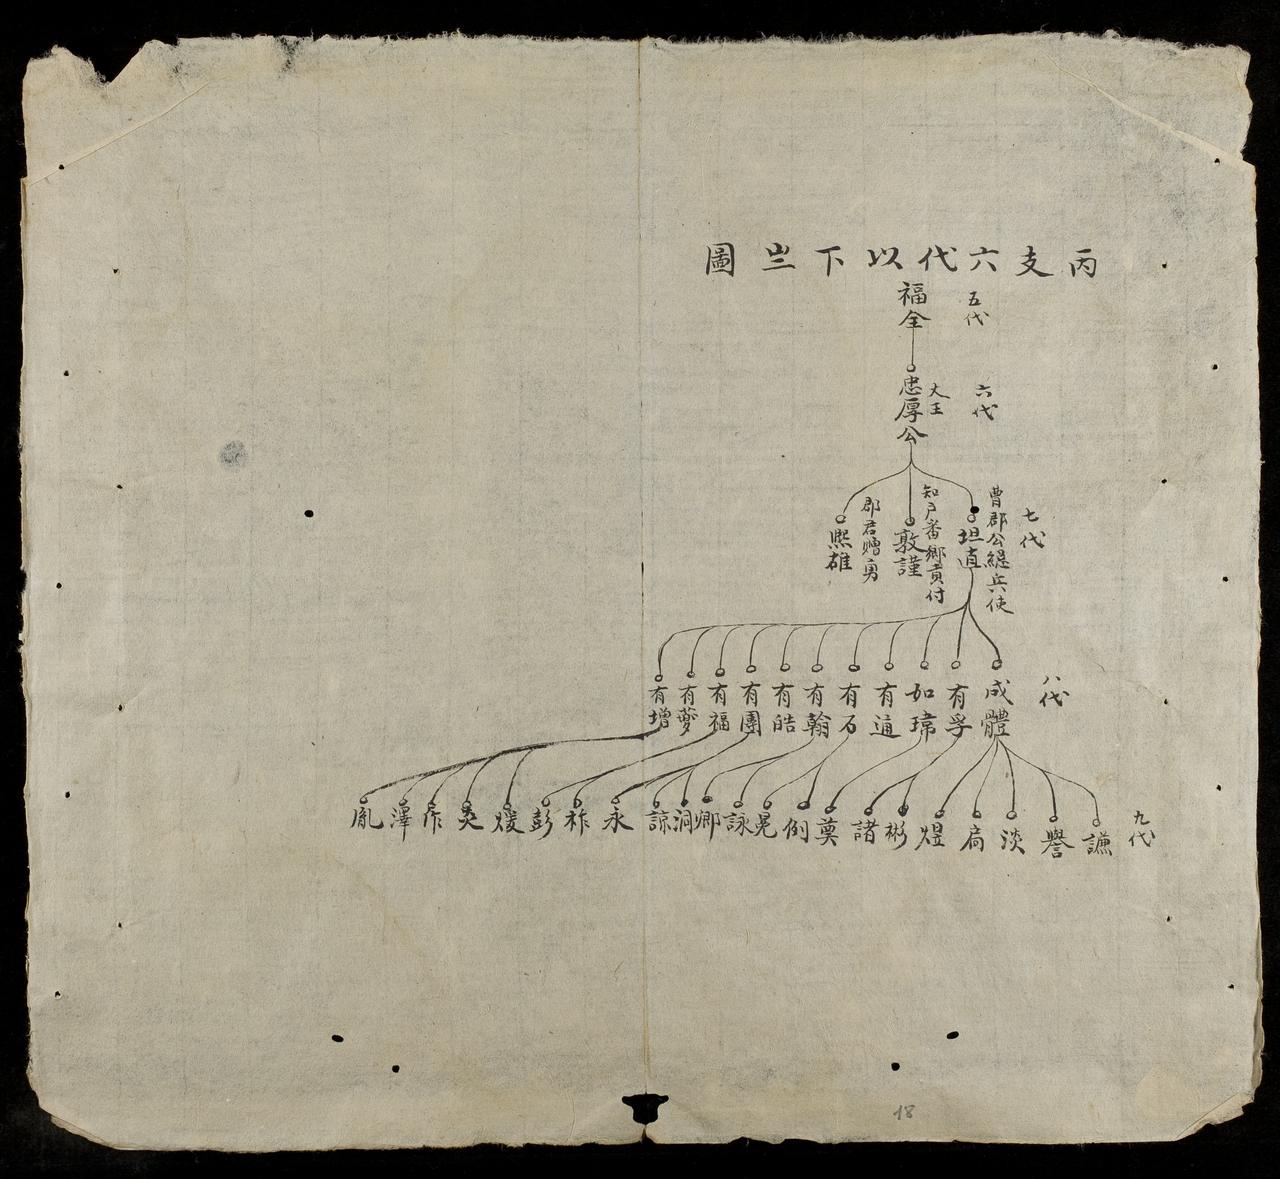 丙支六代以下亗圖
五代
福全
六代
大王
忠厚公
七代
曹郡公緹兵使
坦直
知戶番鄉貢付
敦謹
郡君贈勇
熙雄
八代
成體
有孚
如瑋
有通
有石
有翰
有皓
有團
有福
有夢
有增
九代
謙
譽
淡
扃
煜
彬
諸
奠
例
晃
詠
卿
洞
諒
永
祚
彭
煖
奕
澤
胤
18